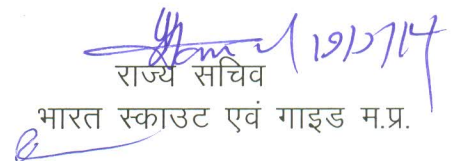 19/7/14
राज्य सचिव
भारत स्काउट एवं गाइड म.प्र.